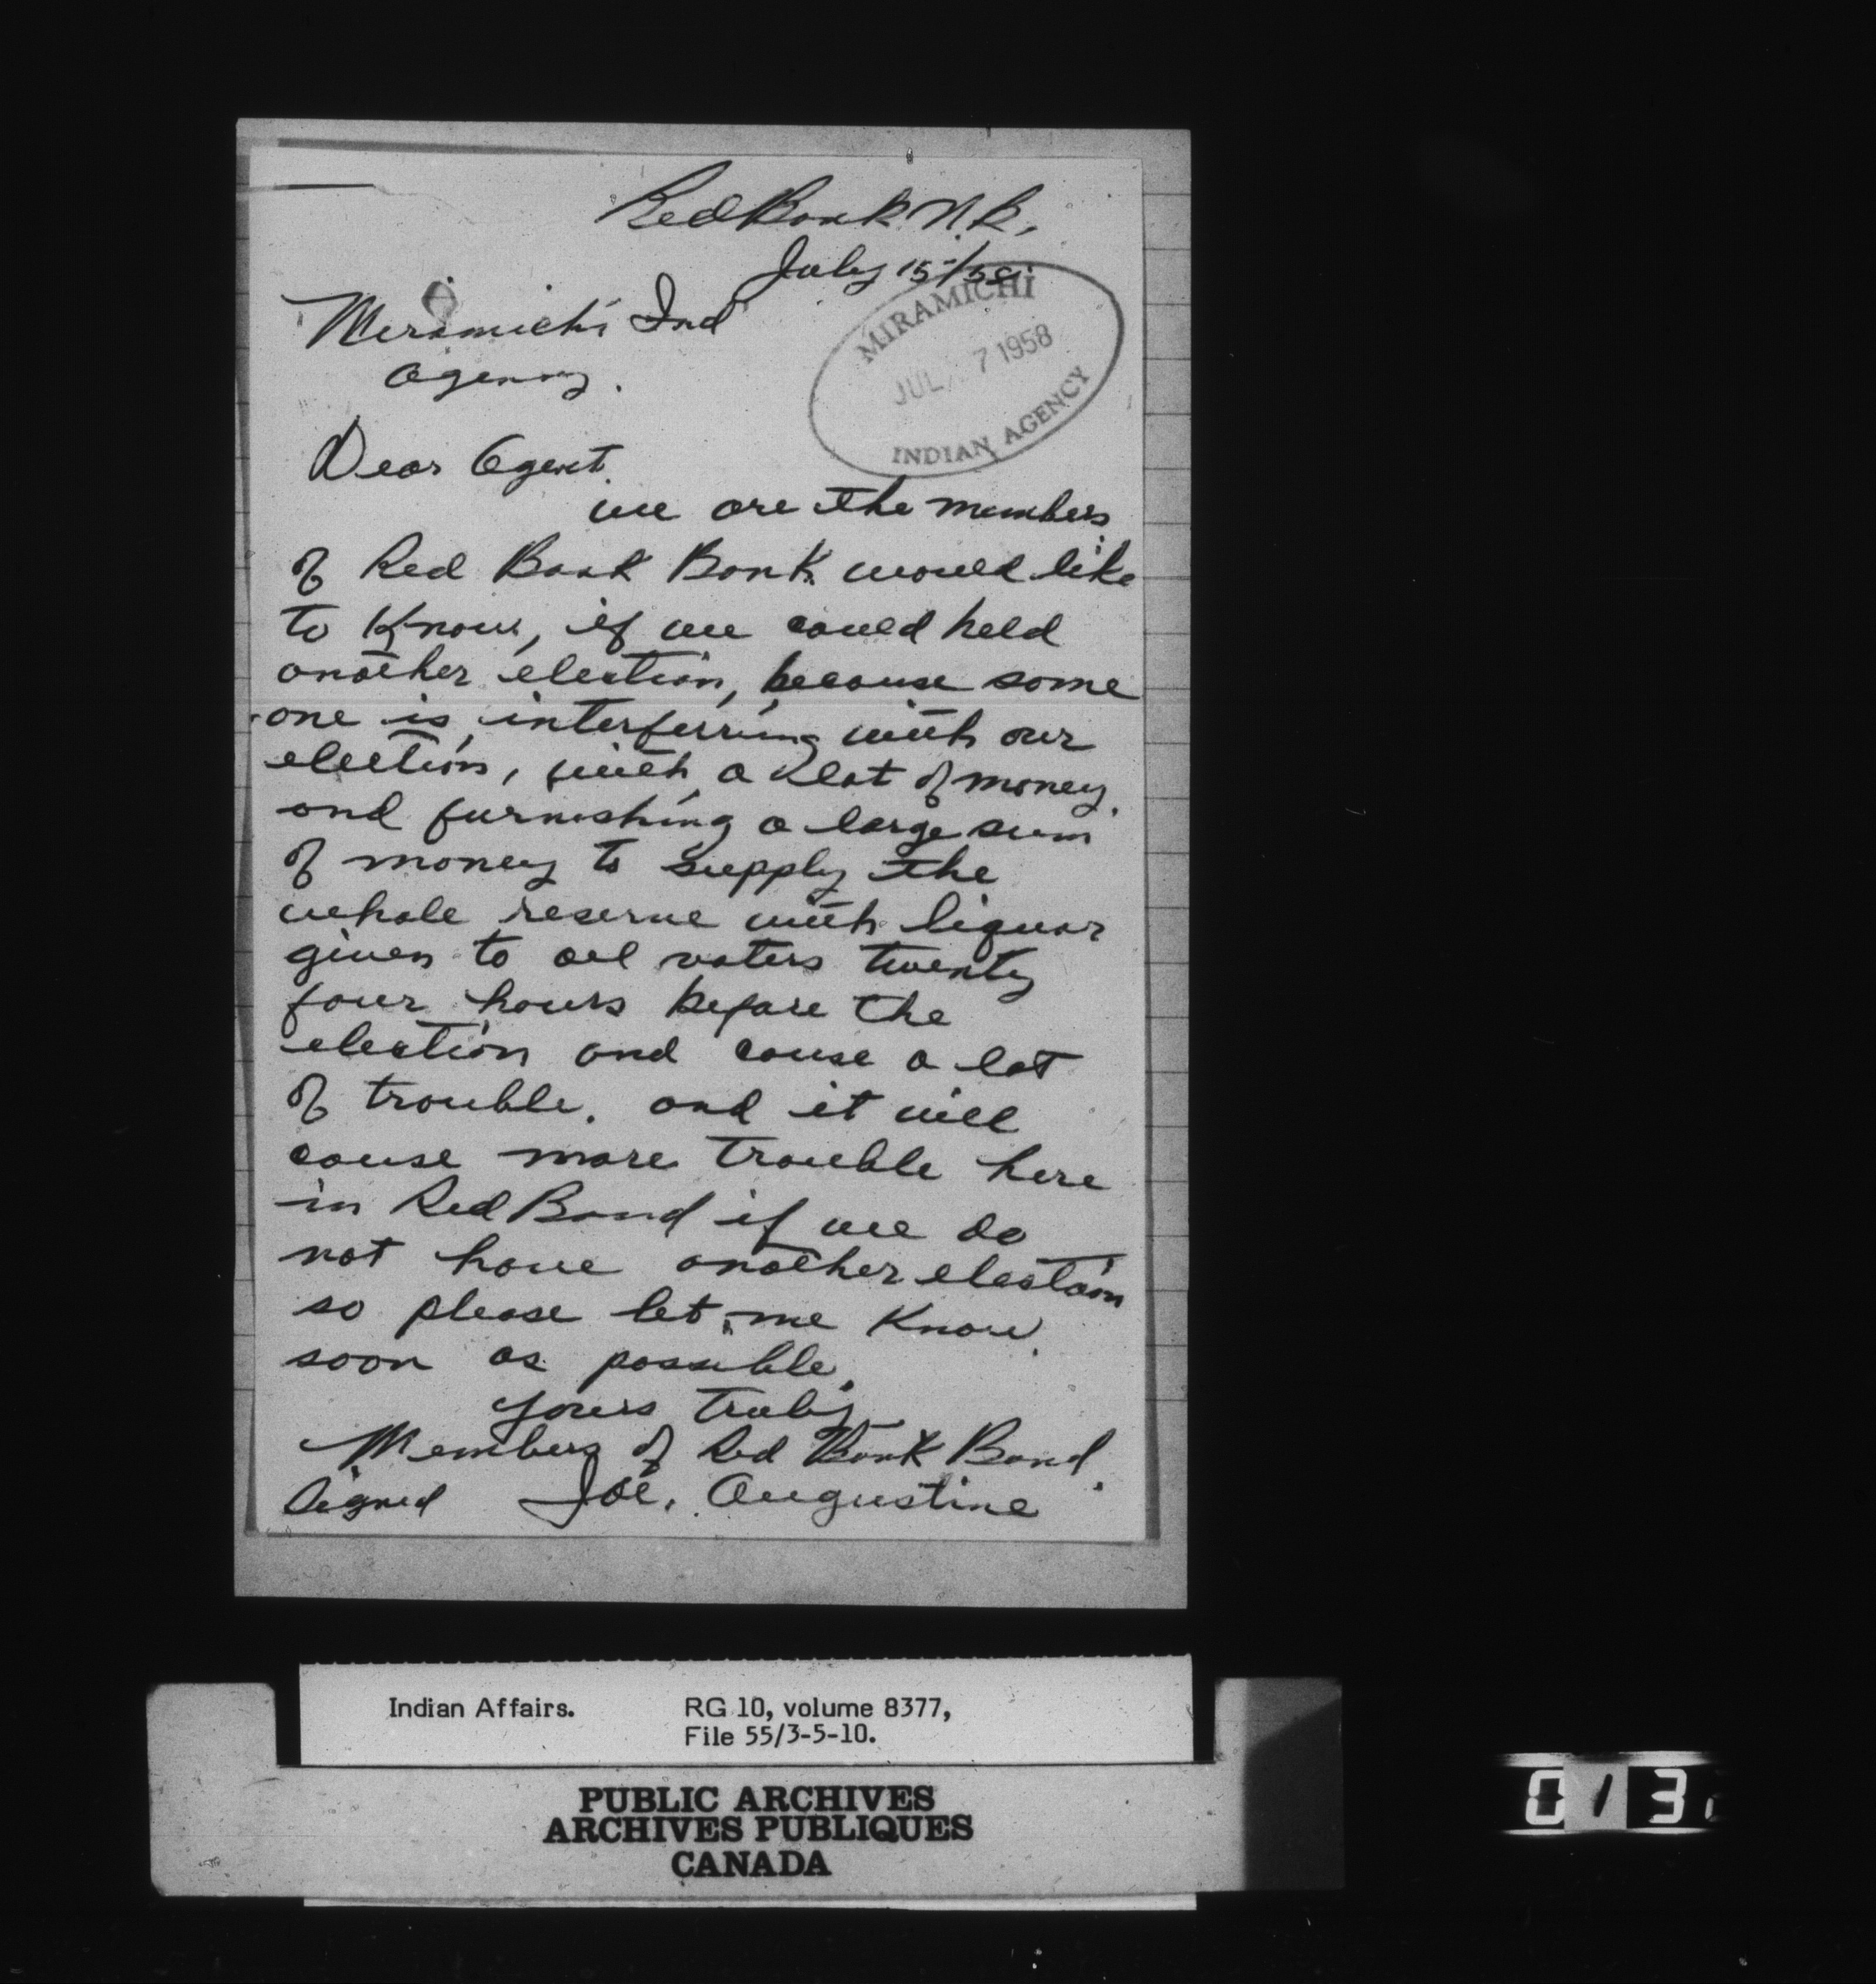 Red Bank N.B.
July 15/58
Meramichi Ind
Agency.
MIRAMICHI
JUL 7 1958
INDIAN AGENCY
Dear Agent
we are the members
of Red Bank Bank would like
to Know, if we could held
another election, because some
one is interferring with our
election, with a lot of money.
and furnishing a large sum
of money to supply the
whole reserve with liquor
given to all voters twenty
four hours before the
election and cause a lot
of trouble. and it will
couse more trouble here
in Red Band if we do
not have another election
so please let me Know.
soon as possible.
yours truly
Members of Red Bank Band.
Signed Joe. Augustine
Indian Affairs. RG 10, volume 8377,
File 55/3-5-10.
PUBLIC ARCHIVES
ARCHIVES PUBLIQUES
CANADA
0 1 3